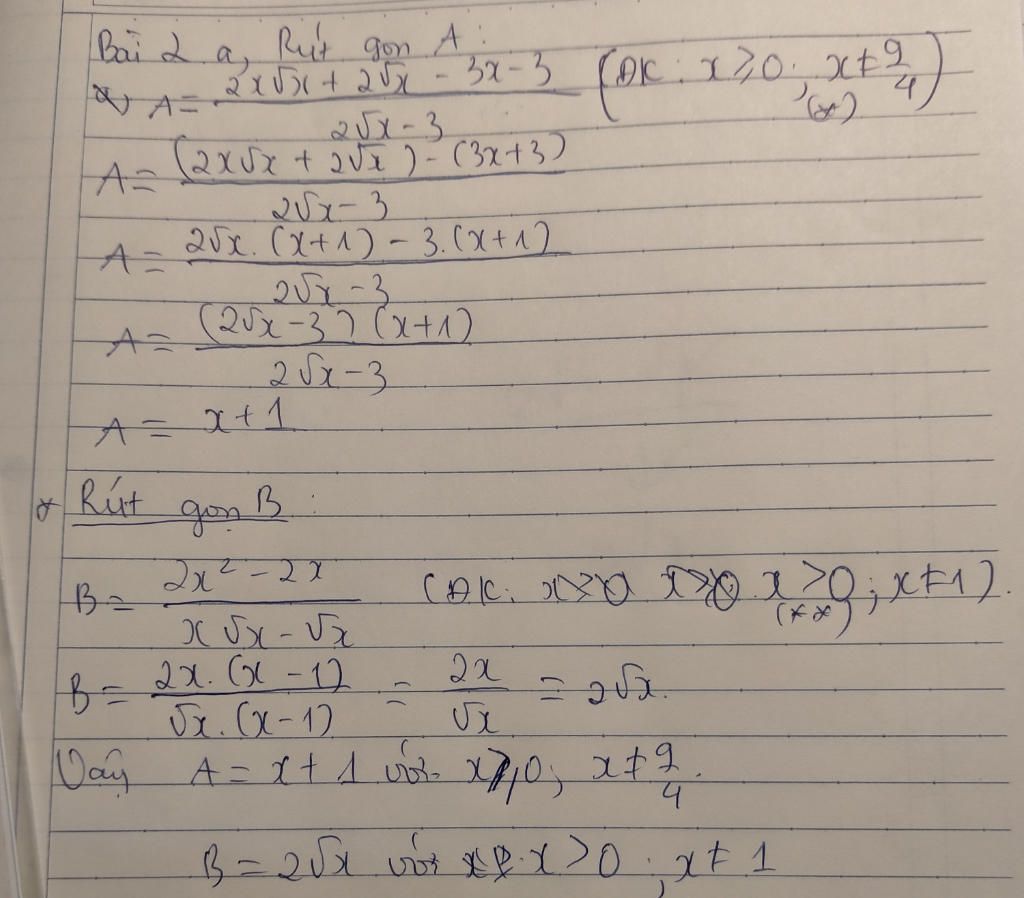 Bài 2 a, Rút gọn A :
A = (2x√x + 2√x - 3x - 3)/(2√x - 3) (ĐK : x ⩾ 0 ; x ≠ 9/4) (*)
A = ((2x√x + 2√x) - (3x+3))/(2√x - 3)
A = (2√x. (x+1) - 3.(x+1))/(2√x - 3)
A = ((2√x - 3) (x+1))/(2√x - 3)
A = x + 1
* Rút gọn B :
B = (2x² - 2x)/(x√x - √x) (ĐK: x > 0 ; x ≠ 1). (**)
B = (2x. (x - 1))/(√x. (x - 1)) = 2x/√x = 2√x.
Vậy A = x + 1 với x ⩾ 0; x ≠ 9/4.
B = 2√x với x > 0 ; x ≠ 1